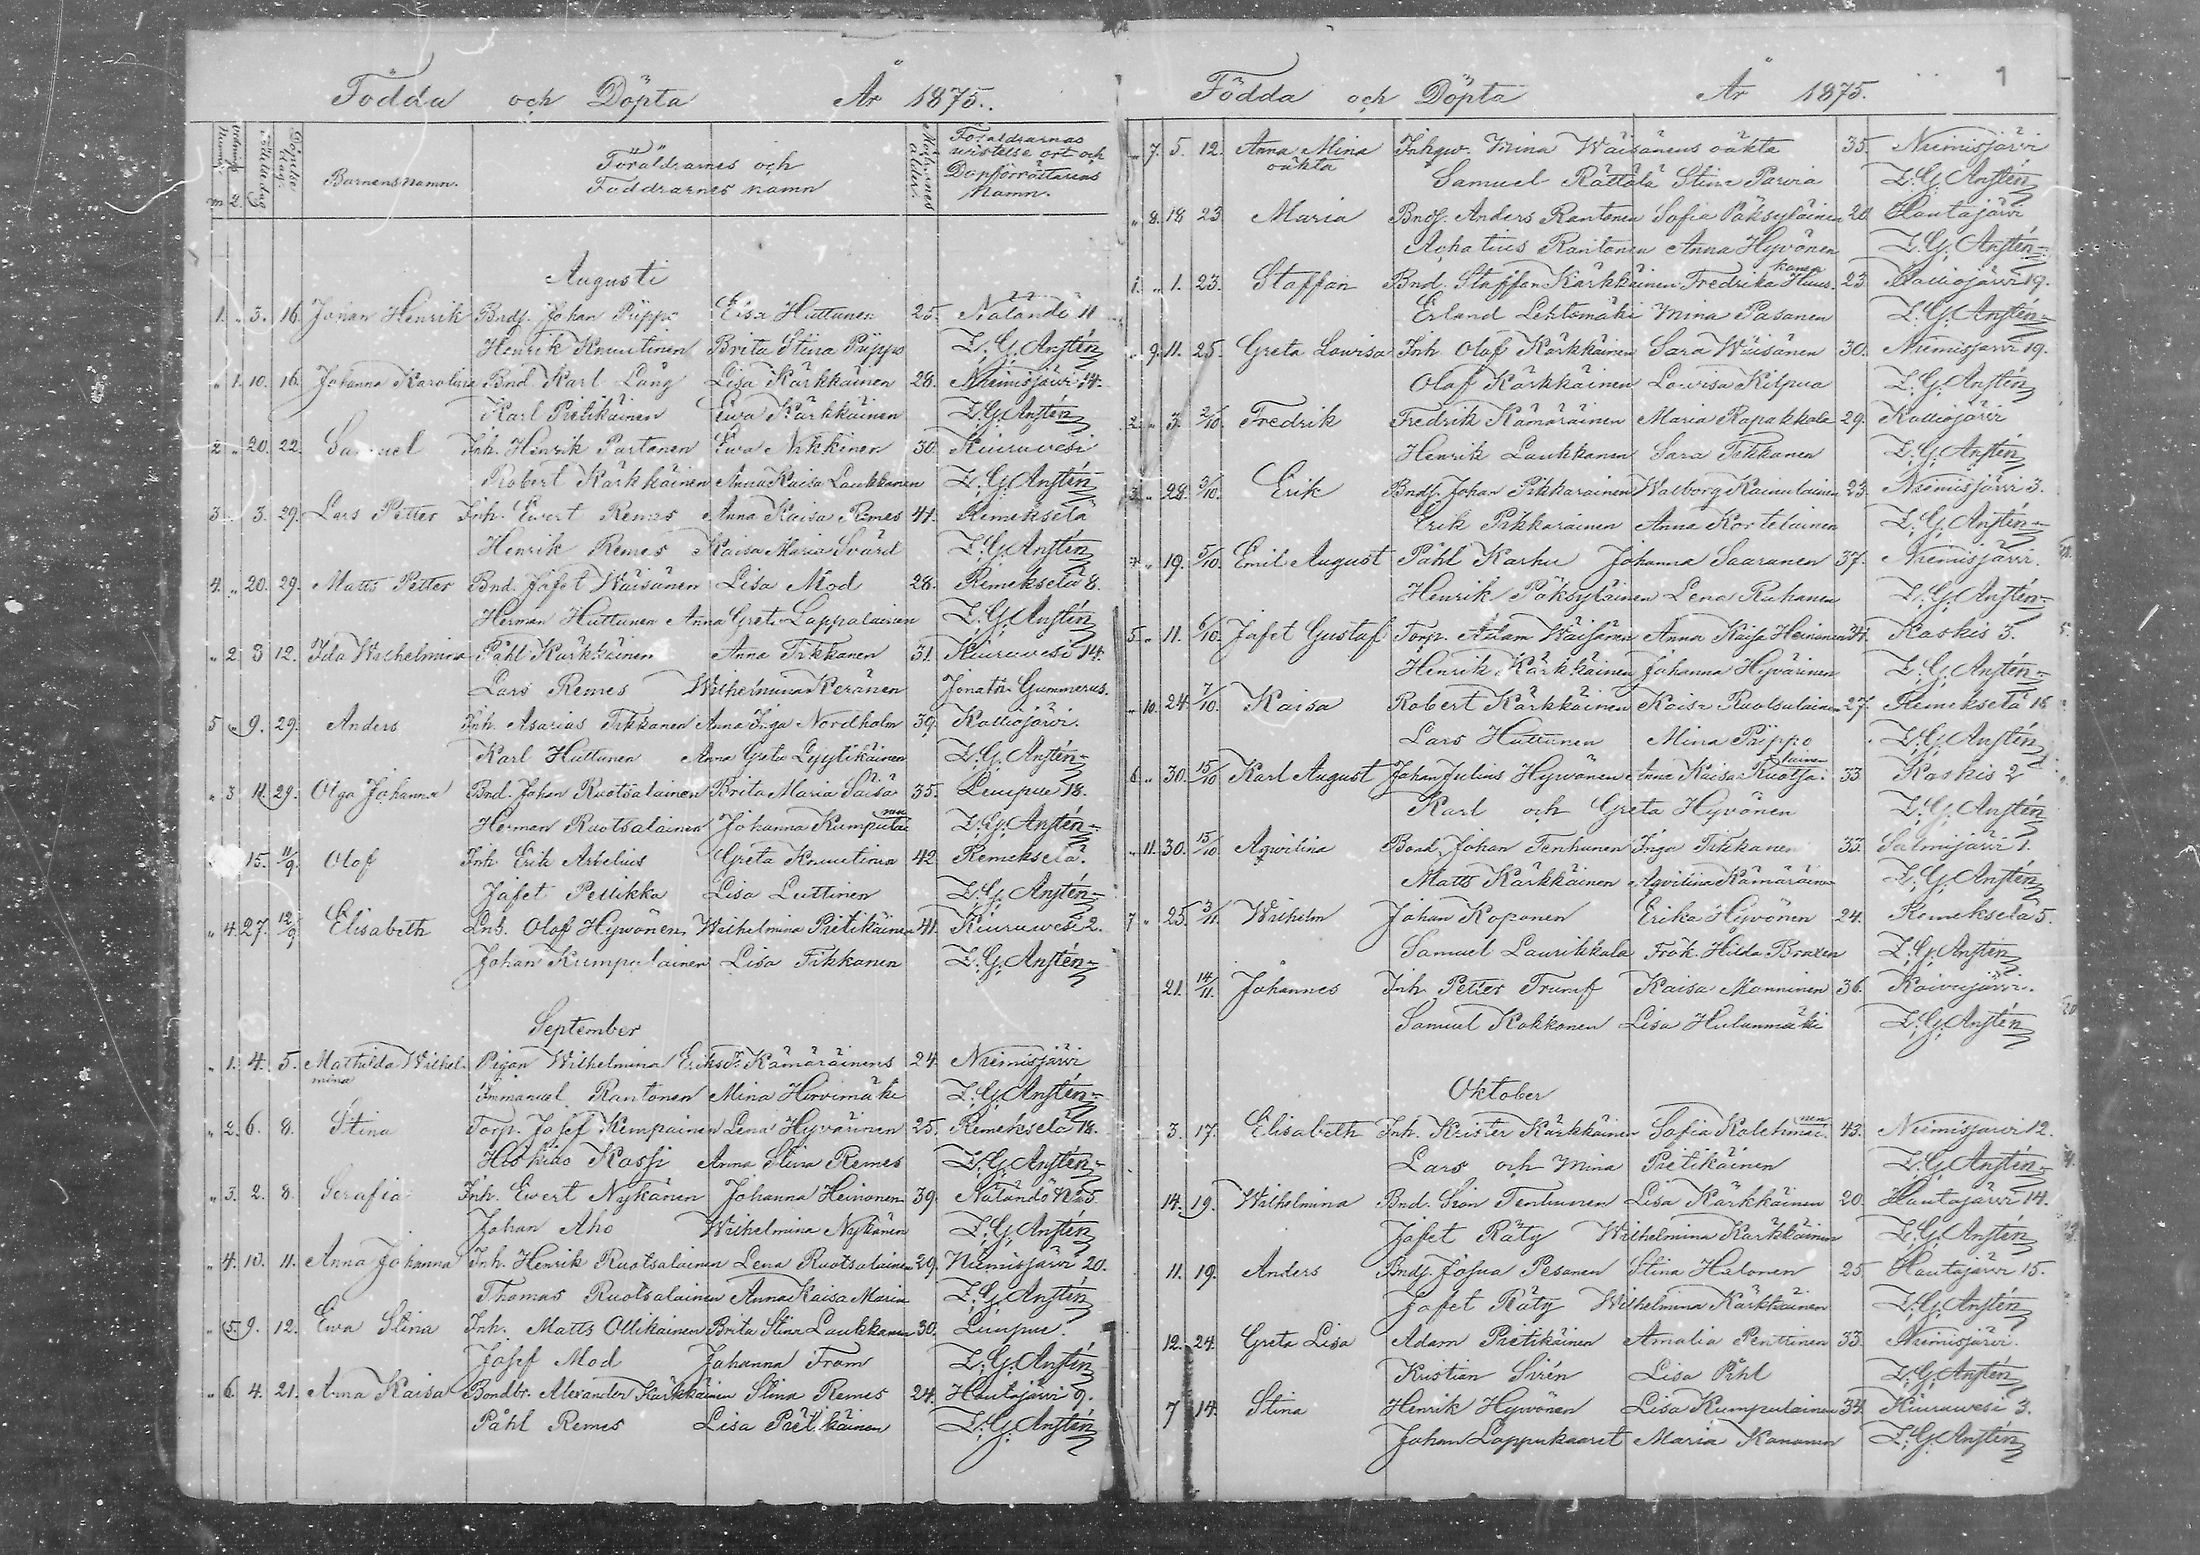 Födda och Döpta År 1875.
Barnens namn.
Föräldrarnes och
Faddrarnes namn
Modrens ålder.
Föräldrarnas
vistelse ort och
Dopförrättarens
Namn.
Augusti
1. „ 3. 16. Johan Henrik Bndj. Johan Piippo Eisa Huttunen 25. Näländö 11
Henrik Knuutinen Brita Stina Piippo Z. G. Anstén
„ 1. 10. 16. Johanna Karolina Bnd. Karl Lång Lisa Kärkkäinen 28. Niemisjärvi 14.
Karl Pietikäinen Ewa Kärkkäinen Z. G. Anstén
2 „ 20. 22. Samuel Inh. Henrik Partanen Ewa Nikkinen 30. Kiuruwesi
Robert Kärkkäinen Anna Kaisa Laukkanen Z. G. Anstén
3. „ 3. 29. Lars Petter Inh. Ewert Remes Anna Kaisa Remes 41. Remekselä
Henrik Remes Kaisa Maria Svärd Z. G. Anstén
4. „ 20. 29. Matts Petter Bnd. Jafet Wäisänen Lisa Mod 28. Remekselä 8.
Herman Huttunen Anna Greta Lappalainen Z. G. Anstén
„ 2. 3 12. Ida Wilhelmina Påhl Kärkkäinen Anna Tikkanen 31. Kiuruwesi 14.
Lars Remes Wilhelmina Keränen Jonath. Gummerus.
5 „ 9. 29. Anders Inh. Asarias Tikkanen Anna Inga Nordholm 39. Kalliojärvi.
Karl Huttunen Anna Greta Lyytikäinen Z. G. Anstén
„ 3 11. 29. Olga Johanna Bnd. Johan Ruotsalainen Brita Maria Säisä 35. Luupue 18.
Herman Ruotsalainen Johanna Kumpulai Z. G. Anstén
15. 11/9. Olof Inh. Erik Arbelius Greta Knuutinen 42. Remekselä.
Jafet Pellikka Lisa Luttinen Z. G. Anstén
„ 4. 27. 12/9 Elisabeth Inh. Olof Hyvönen Wilhelmina Pietikäinen 41. Kiuruwesi 2.
Johan Kumpulainen Lisa Tikkanen Z. G. Anstén
September
„ 1. 4. 5. Mathilda Wilhel- Pigan Wilhelmina Eriksd:r Kämäräinens 24. Niemisjärvi
mina Immanuel Rantonen Mina Hirvimäki Z. G. Anstén
„ 2. 6. 8. Stina Torp. Josef Kempainen Lena Hyvärinen 25. Remekselä 18.
Hiskias Kassi Anna Stina Remes Z. G. Anstén
„ 3. 2. 8. Serafia Inh. Ewert Nykänen Johanna Heinonen 39. Näländö N:o 5
Johan Aho Wilhelmina Nykänen Z. G. Anstén
„ 4. 10. 11. Anna Johanna Inh. Henrik Ruotsalainen Lena Ruotsalainen 29. Niemisjärvi 20.
Thomas Ruotsalainen Anna Kaisa Maria Z. G. Anstén
„ 5. 9. 12. Ewa Stina Inh. Matts Ollikainen Brita Stina Laukkanen 30. Luupue.
Josef Mod Johanna From Z. G. Anstén
„ 6. 4. 21. Anna Kaisa Bondbr. Alexander Kärkkäinen Stina Remes 24. Hautajärvi 9.
Påhl Remes Lisa Pietikäinen Z. G. Anstén
Födda och Döpta År 1875. 1
„ 7. 5. 12. Anna Mina Inhqv. Mina Wäisänens oäkta 35. Niemisjärvi
oäkta Samuel Rättälä Stina Parvia Z. G. Anstén
„ 8. 18 23. Maria Bndj. Anders Rantonen Sofia Päksyläinen 20. Hautajärvi
Achatius Rantonen Anna Hyvönen Z. G. Anstén
kanen
1. „ 1. 23. Staffan Bnd. Staffan Kärkkäinen Fredrika Huus. 23. Kalliojärvi 19.
Erland Lehtomäki Mina Pasanen Z. G. Anstén
„ 9. 11. 25. Greta Lovisa Inh. Olof Kärkkäinen Sara Wäisänen 30. Niemisjärvi 19.
Olof Kärkkäinen Lovisa Kilpua Z. G. Anstén
2. „ 3. 2/10. Fredrik Fredrik Kämäräinen Maria Rapakkola 29. Kalliojärvi
Henrik Laukkanen Sara Tikkanen Z. G. Anstén
3. „ 28. 3/10. Erik Bndj. Johan Pikkarainen Walborg Kainulainen 23. Niemisjärvi 3.
Erik Pikkarainen Anna Kortelainen Z. G. Anstén
4 „ 19. 5/10. Emil August Påhl Karhu Johanna Saaranen 37. Niemisjärvi.
Henrik Päksyläinen Lena Ruhanen Z. G. Anstén
5. „ 11. 6/10. Jafet Gustaf Torp. Adam Wäisänen Anna Kaisa Heinonen 34. Koskis 5.
Henrik Kärkkäinen Johanna Hyvärinen Z. G. Anstén
„ 10. 24. 7/10. Kaisa Robert Kärkkäinen Kaisa Ruotsalainen 27. Remekselä 18
Lars Huttunen Mina Piippo Z. G. Anstén
lainen
6 „ 30. 15/10 Karl August Johan Julius Hyvönen Anna Kaisa Ruotsa. 33. Koskis 2
Karl och Greta Hyvönen Z. G. Anstén
„ 11. 30. 15/10 Aqvilina Bond. Johan Tenhunen Inga Tikkanen 33. Salmijärvi 1.
Matts Kärkkäinen Aqvilina Kämäräinen Z. G. Anstén
7 „ 25. 3/11. Wilhelm Johan Koponen Erika Hyvönen 24. Remekselä 5.
Samuel Laurikkala Frök. Hilda Braxen Z. G. Anstén
21. 14/11. Johannes Inh. Petter Trumf Kaisa Manninen 36. Koivujärvi.
Samuel Kokkonen Lisa Hulanmäki Z. G. Anstén
Oktober
nen
3. 17. Elisabeth Inh. Krister Kärkkäinen Sofia Kolehmai. 43. Niemisjärvi 12.
Lars och Mina Pietikäinen Z. G. Anstén
14. 19. Wilhelmina Bnd. Sion Tenhunen Lisa Kärkkäinen 20. Hautajärvi 14.
Jafet Räty Wilhelmina Kärkkäinen Z. G. Anstén
11. 19. Anders Bndj. Josua Pesonen Stina Halonen 25. Hautajärvi 15.
Jafet Räty Wilhelmina Kärkkäinen Z. G. Anstén
12. 24. Greta Lisa Adam Pietikäinen Amalia Penttinen 33. Niemisjärvi.
Kristian Sirén Lisa Pihl Z. G. Anstén
7 14. Stina Henrik Hyvönen Lisa Kumpulainen 34. Kiuruwesi 3.
Johan Lappukaaret Maria Kananen Z. G. Anstén